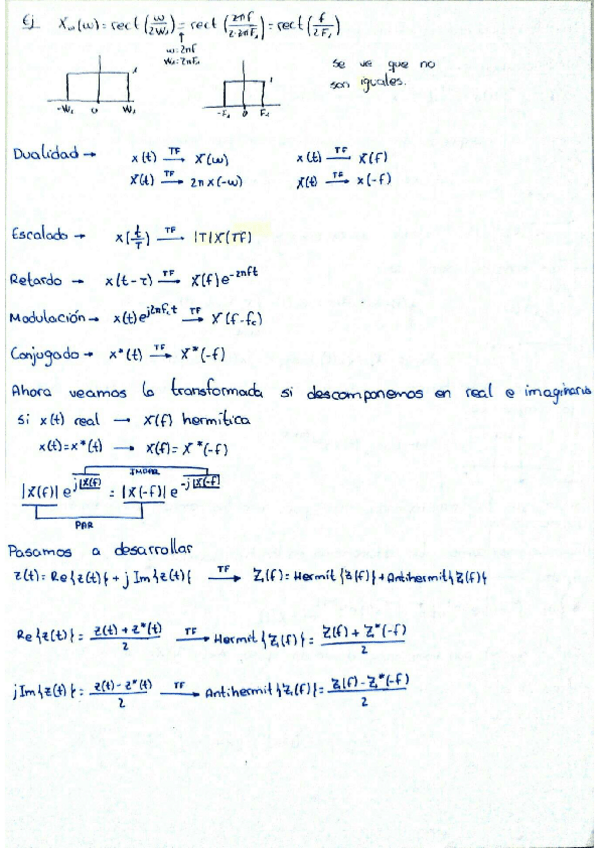 Ej X_ω(ω) = rect(ω/2W₁) = rect(2πf/2·2πF₁) = rect(f/2F₁)
ω=2πf
W₁=2πF₁
se ve que no
son iguales.
1
1
-W₁ 0 W₁
-F₁ 0 F₁
Dualidad → x(t) —TF→ X(ω) x(t) —TF→ X(f)
X(t) —TF→ 2πx(-ω) X(t) —TF→ x(-f)
Escalado → x[t/T] —TF→ |T|X(Tf)
Retardo → x(t-τ) —TF→ X(f)e^-2πfτ
Modulación → x(t)e^j2πf_ct —TF→ X(f-f_c)
Conjugado → x*(t) —TF→ X*(-f)
Ahora veamos la transformada si descomponemos en real e imaginario
si x(t) real → X(f) hermítica
x(t)=x*(t) → X(f)=X*(-f)
IMPAR
|X(f)| e^j∠X(f) = |X(-f)| e^-j∠X(-f)
PAR
Pasamos a desarrollar
z(t)=Re{z(t)}+jIm{z(t)} —TF→ Z(f)=Hermit{Z(f)}+Antihermit{Z(f)}
Re{z(t)}=z(t)+z*(t)/2 —TF→ Hermit{Z(f)}=Z(f)+Z*(-f)/2
jIm{z(t)}=z(t)-z*(t)/2 —TF→ Antihermit{Z(f)}=Z(f)-Z*(-f)/2